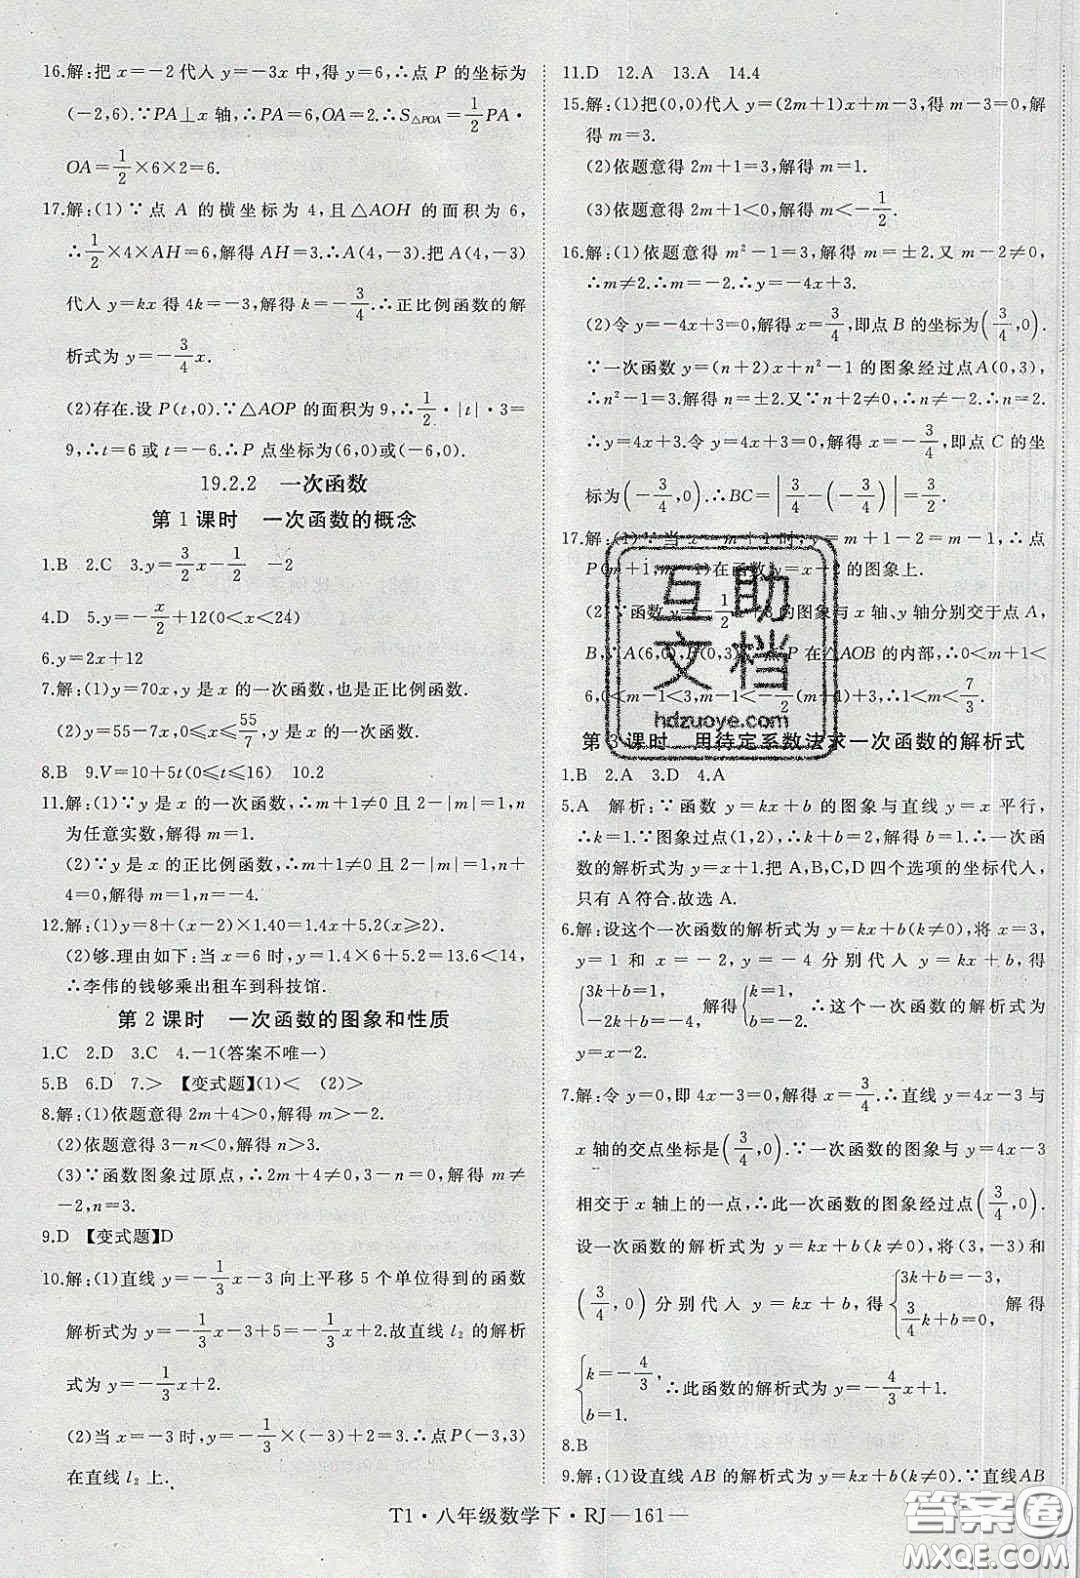 16.解:把 x=-2代入 y=-3x中,得 y=6,∴点 P 的坐标为
(-2,6).∵PA⊥x 轴,∴PA=6,OA=2.∴S△POA=1/2PA·
OA=1/2×6×2=6.
17.解:(1)∵点 A 的横坐标为 4,且△AOH 的面积为 6,
∴1/2×4×AH=6,解得 AH=3.∴A(4,-3).把 A(4,-3)
代入 y=kx 得 4k=-3,解得 k=-3/4.∴正比例函数的解
析式为 y=-3/4x.
(2)存在.设 P(t,0).∵△AOP的面积为 9,∴1/2·|t|·3=
9,∴t=6 或 t=-6.∴P 点坐标为(6,0)或(-6,0).
19.2.2 一次函数
第1课时 一次函数的概念
1.B 2.C 3.y=3/2x-1/2 -2
4.D 5.y=-x/2+12(0<x<24)
6.y=2x+12
7.解:(1)y=70x,y 是 x 的一次函数,也是正比例函数.
(2)y=55-7x,0≤x≤55/7,y 是 x 的一次函数.
8.B 9.V=10+5t(0≤t≤16) 10.2
11.解:(1)∵y 是 x 的一次函数,∴m+1≠0 且 2-|m|=1,n
为任意实数,解得 m=1.
(2)∵y 是 x 的正比例函数,∴m+1≠0 且 2-|m|=1,n+
4=0,解得 m=1,n=-4.
12.解:(1)y=8+(x-2)×1.40=1.4x+5.2(x≥2).
(2)够.理由如下:当 x=6 时,y=1.4×6+5.2=13.6<14,
∴李伟的钱够乘出租车到科技馆.
第2课时 一次函数的图象和性质
1.C 2.D 3.C 4.-1(答案不唯一)
5.B 6.D 7.> 【变式题】(1)< (2)>
8.解:(1)依题意得 2m+4>0,解得 m>-2.
(2)依题意得 3-n<0,解得 n>3.
(3)∵函数图象过原点,∴2m+4≠0,3-n=0,解得 m≠
-2,n=3.
9.D 【变式题】D
10.解:(1)直线 y=-1/3x-3 向上平移 5 个单位得到的函数
解析式为 y=-1/3x-3+5=-1/3x+2.故直线 l₂ 的解析
式为 y=-1/3x+2.
(2)当 x=-3 时,y=-1/3×(-3)+2=3,∴点P(-3,3)
在直线 l₂ 上.
11.D 12.A 13.A 14.4
15.解:(1)把(0,0)代入 y=(2m+1)x+m-3,得 m-3=0,解
得 m=3.
(2)依题意得 2m+1=3,解得 m=1.
(3)依题意得 2m+1<0,解得 m<-1/2.
16.解:(1)依题意得 m²-1=3,解得 m=±2.又 m-2≠0,
∴m≠2.∴m=-2.∴y=-4x+3.
(2)令 y=-4x+3=0,解得 x=3/4,即点 B 的坐标为(3/4,0).
∵一次函数 y=(n+2)x+n²-1 的图象经过点A(0,3),
∴n²-1=3.解得 n=±2.又∵n+2≠0,∴n≠-2.∴n=2.
∴y=4x+3.令 y=4x+3=0,解得 x=-3/4,即点 C 的坐
标为(-3/4,0).∴BC=|3/4-(-3/4)|=
17.解:(1)∵当 x=m+1 时,y=m+1-2=m-1,∴点
P(m+1,m-1)在函数 y=x-2 的图象上.
(2)∵函数 y=-1/2x+3 的图象与 x 轴、y 轴分别交于点 A,
B,∴A(6,0),B(0,3).∵点P 在△AOB 的内部,∴0<m+1<
6,0<m-1<3,m-1<-1/2(m+1)+3,∴1<m<7/3.
第3课时 用待定系数法求一次函数的解析式
1.B 2.A 3.D 4.A
5.A 解析:∵函数 y=kx+b 的图象与直线 y=x 平行,
∴k=1.∵图象过点(1,2),∴k+b=2,解得 b=1.∴一次函
数的解析式为 y=x+1.把 A,B,C,D 四个选项的坐标代入,
只有 A符合.故选 A.
6.解:设这个一次函数的解析式为 y=kx+b(k≠0),将 x=3,
y=1 和 x=-2,y=-4 分别代入 y=kx+b(k≠0),得
{3k+b=1, -2k+b=-4, 解得{k=1, b=-2. ∴这个一次函数的解析式为
y=x-2.
7.解:令 y=0,即 4x-3=0,解得 x=3/4.∴直线 y=4x-3 与
x 轴的交点坐标是(3/4,0).∵一次函数的图象与 y=4x-3
相交于 x 轴上的一点,∴此一次函数的图象经过点(3/4,0).
设一次函数的解析式为 y=kx+b(k≠0),将(3,-3)和
(3/4,0)分别代入 y=kx+b,得{3k+b=-3, 3/4k+b=0, 解得
{k=-4/3, b=1. ∴此函数的解析式为 y=-4/3x+1.
8.B
9.解:(1)设直线 AB 的解析式为 y=kx+b(k≠0).∵直线AB
T1·八年级数学下·RJ—161—
互助
文档
hdzuoye.com
答案圈
MXQE.COM